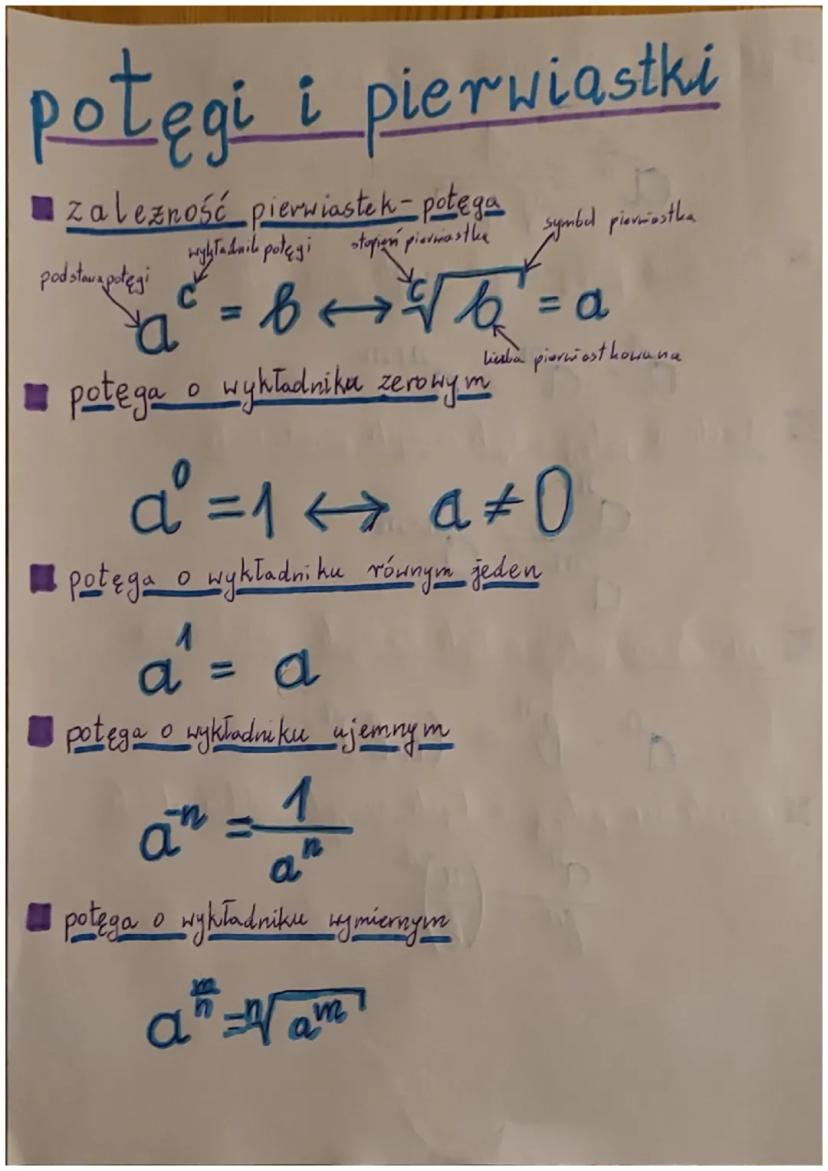 potęgi i pierwiastki
zależność pierwiastek-potęga
podstawa potęgi
wykładnik potęgi
stopień pierwiastka
symbol pierwiastka
a^c = b ↔ ᶜ√b = a
liczba pierwiastkowana
potęga o wykładniku zerowym
a^0 = 1 ↔ a ≠ 0
potęga o wykładniku równym jeden
a^1 = a
potęga o wykładniku ujemnym
a^-n = 1/a^n
potęga o wykładniku wymiernym
a^(m/n) = ⁿ√a^m